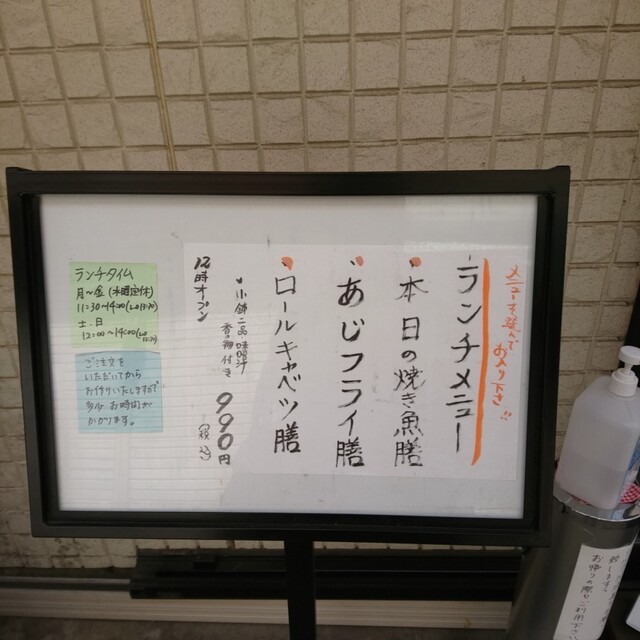 メニューを選んで
お入り下さい!!
ランチメニュー
・本日の焼き魚膳
・あじフライ膳
・ロールキャベツ膳
・小鉢二品 味噌汁
香物付き 990円
(税込)
12時オープン
ランチタイム
月〜金(水曜定休)
11:30〜14:00
土.日
12:00〜14:00
ご注文を
いただいてから
お作りいたしますので
多少 お時間が
かかります。
お帰りの際もご利用下さい